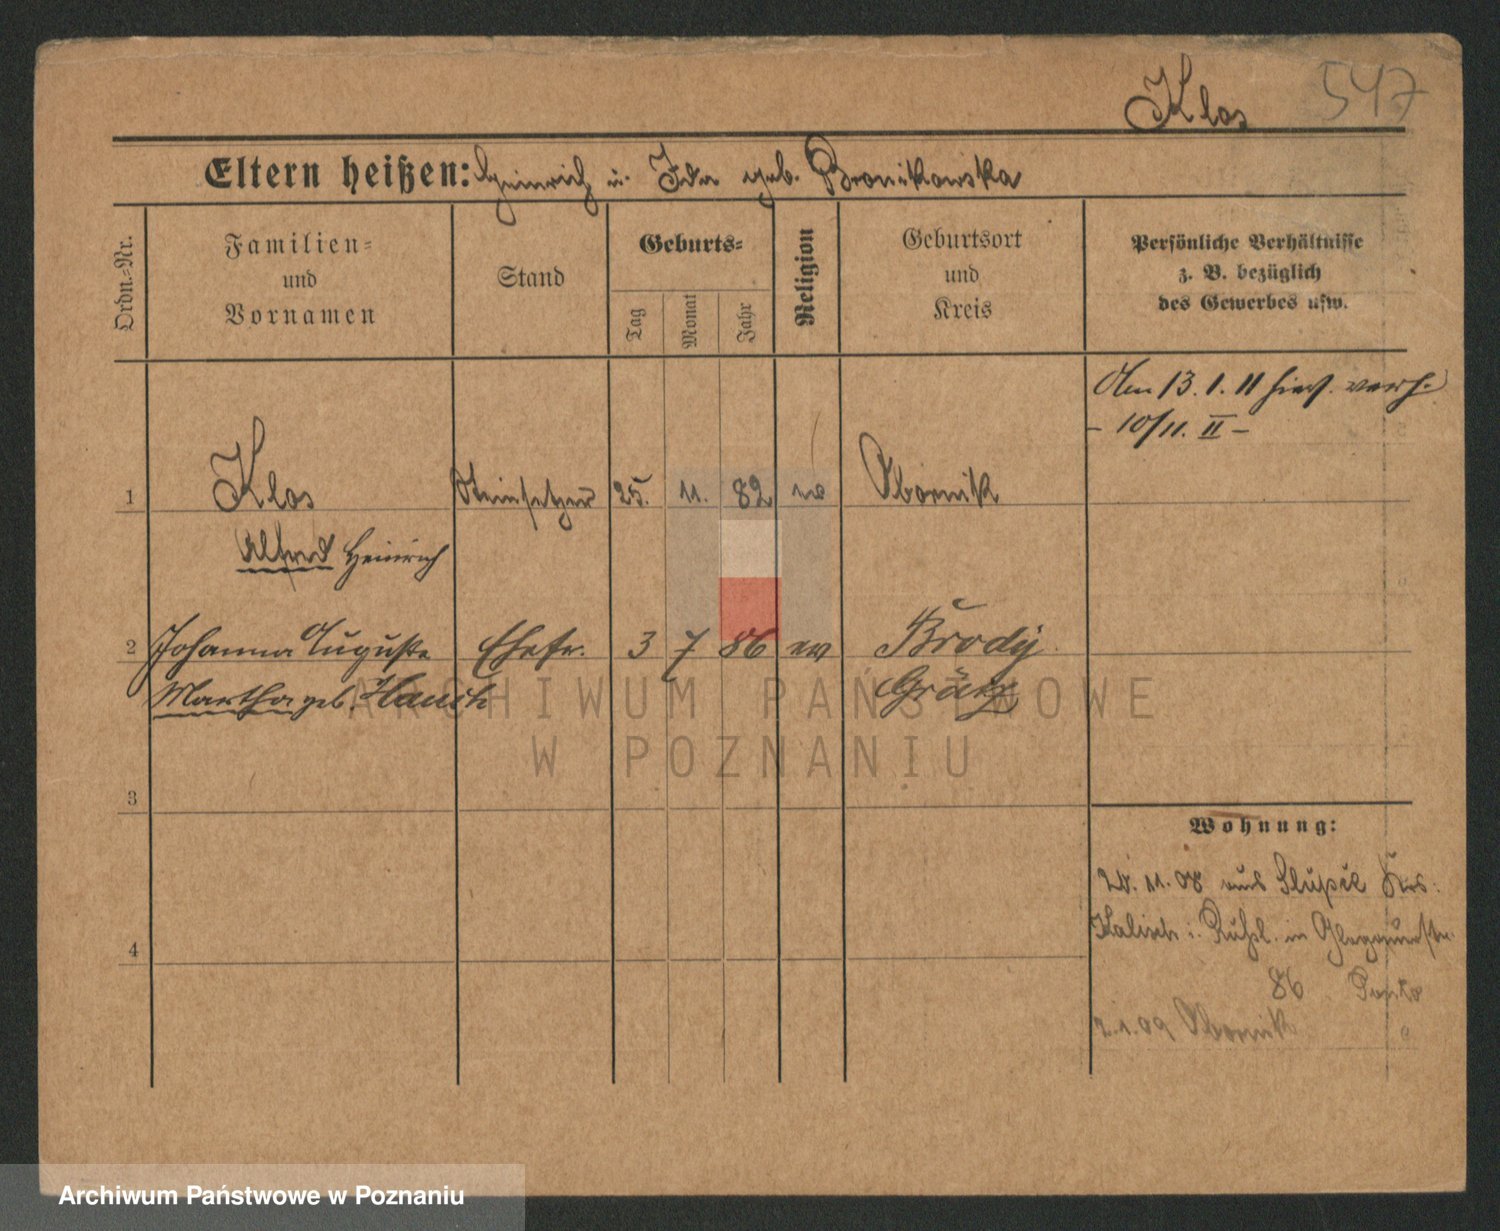 Klos 547
Eltern heißen: Heinrich u. Ida geb. Bronikowska
Ordn.-Nr.
Familien-
und
Vornamen
Stand
Geburts-
Tag
Monat
Jahr
Religion
Geburtsort
und
Kreis
Persönliche Verhältnisse
z. B. bezüglich
des Gewerbes usw.
Am 13. 1. 11 hies. verh.
- 10/11. II -
1 Klos Steinsetzer 25. 11. 82 ev Obornik
Alfred Heinrich
2 Johanna Auguste Ehefr. 3 7 86 ev Brody
Martha geb. Hauch Grätz
ARCHIWUM PAŃSTWOWE
W POZNANIU
3
Wohnung:
11. 08 aus Slupce Krs.
Kalisch i. Rußl. in
4
86
2. 1. 09 Obornik
Archiwum Państwowe w Poznaniu